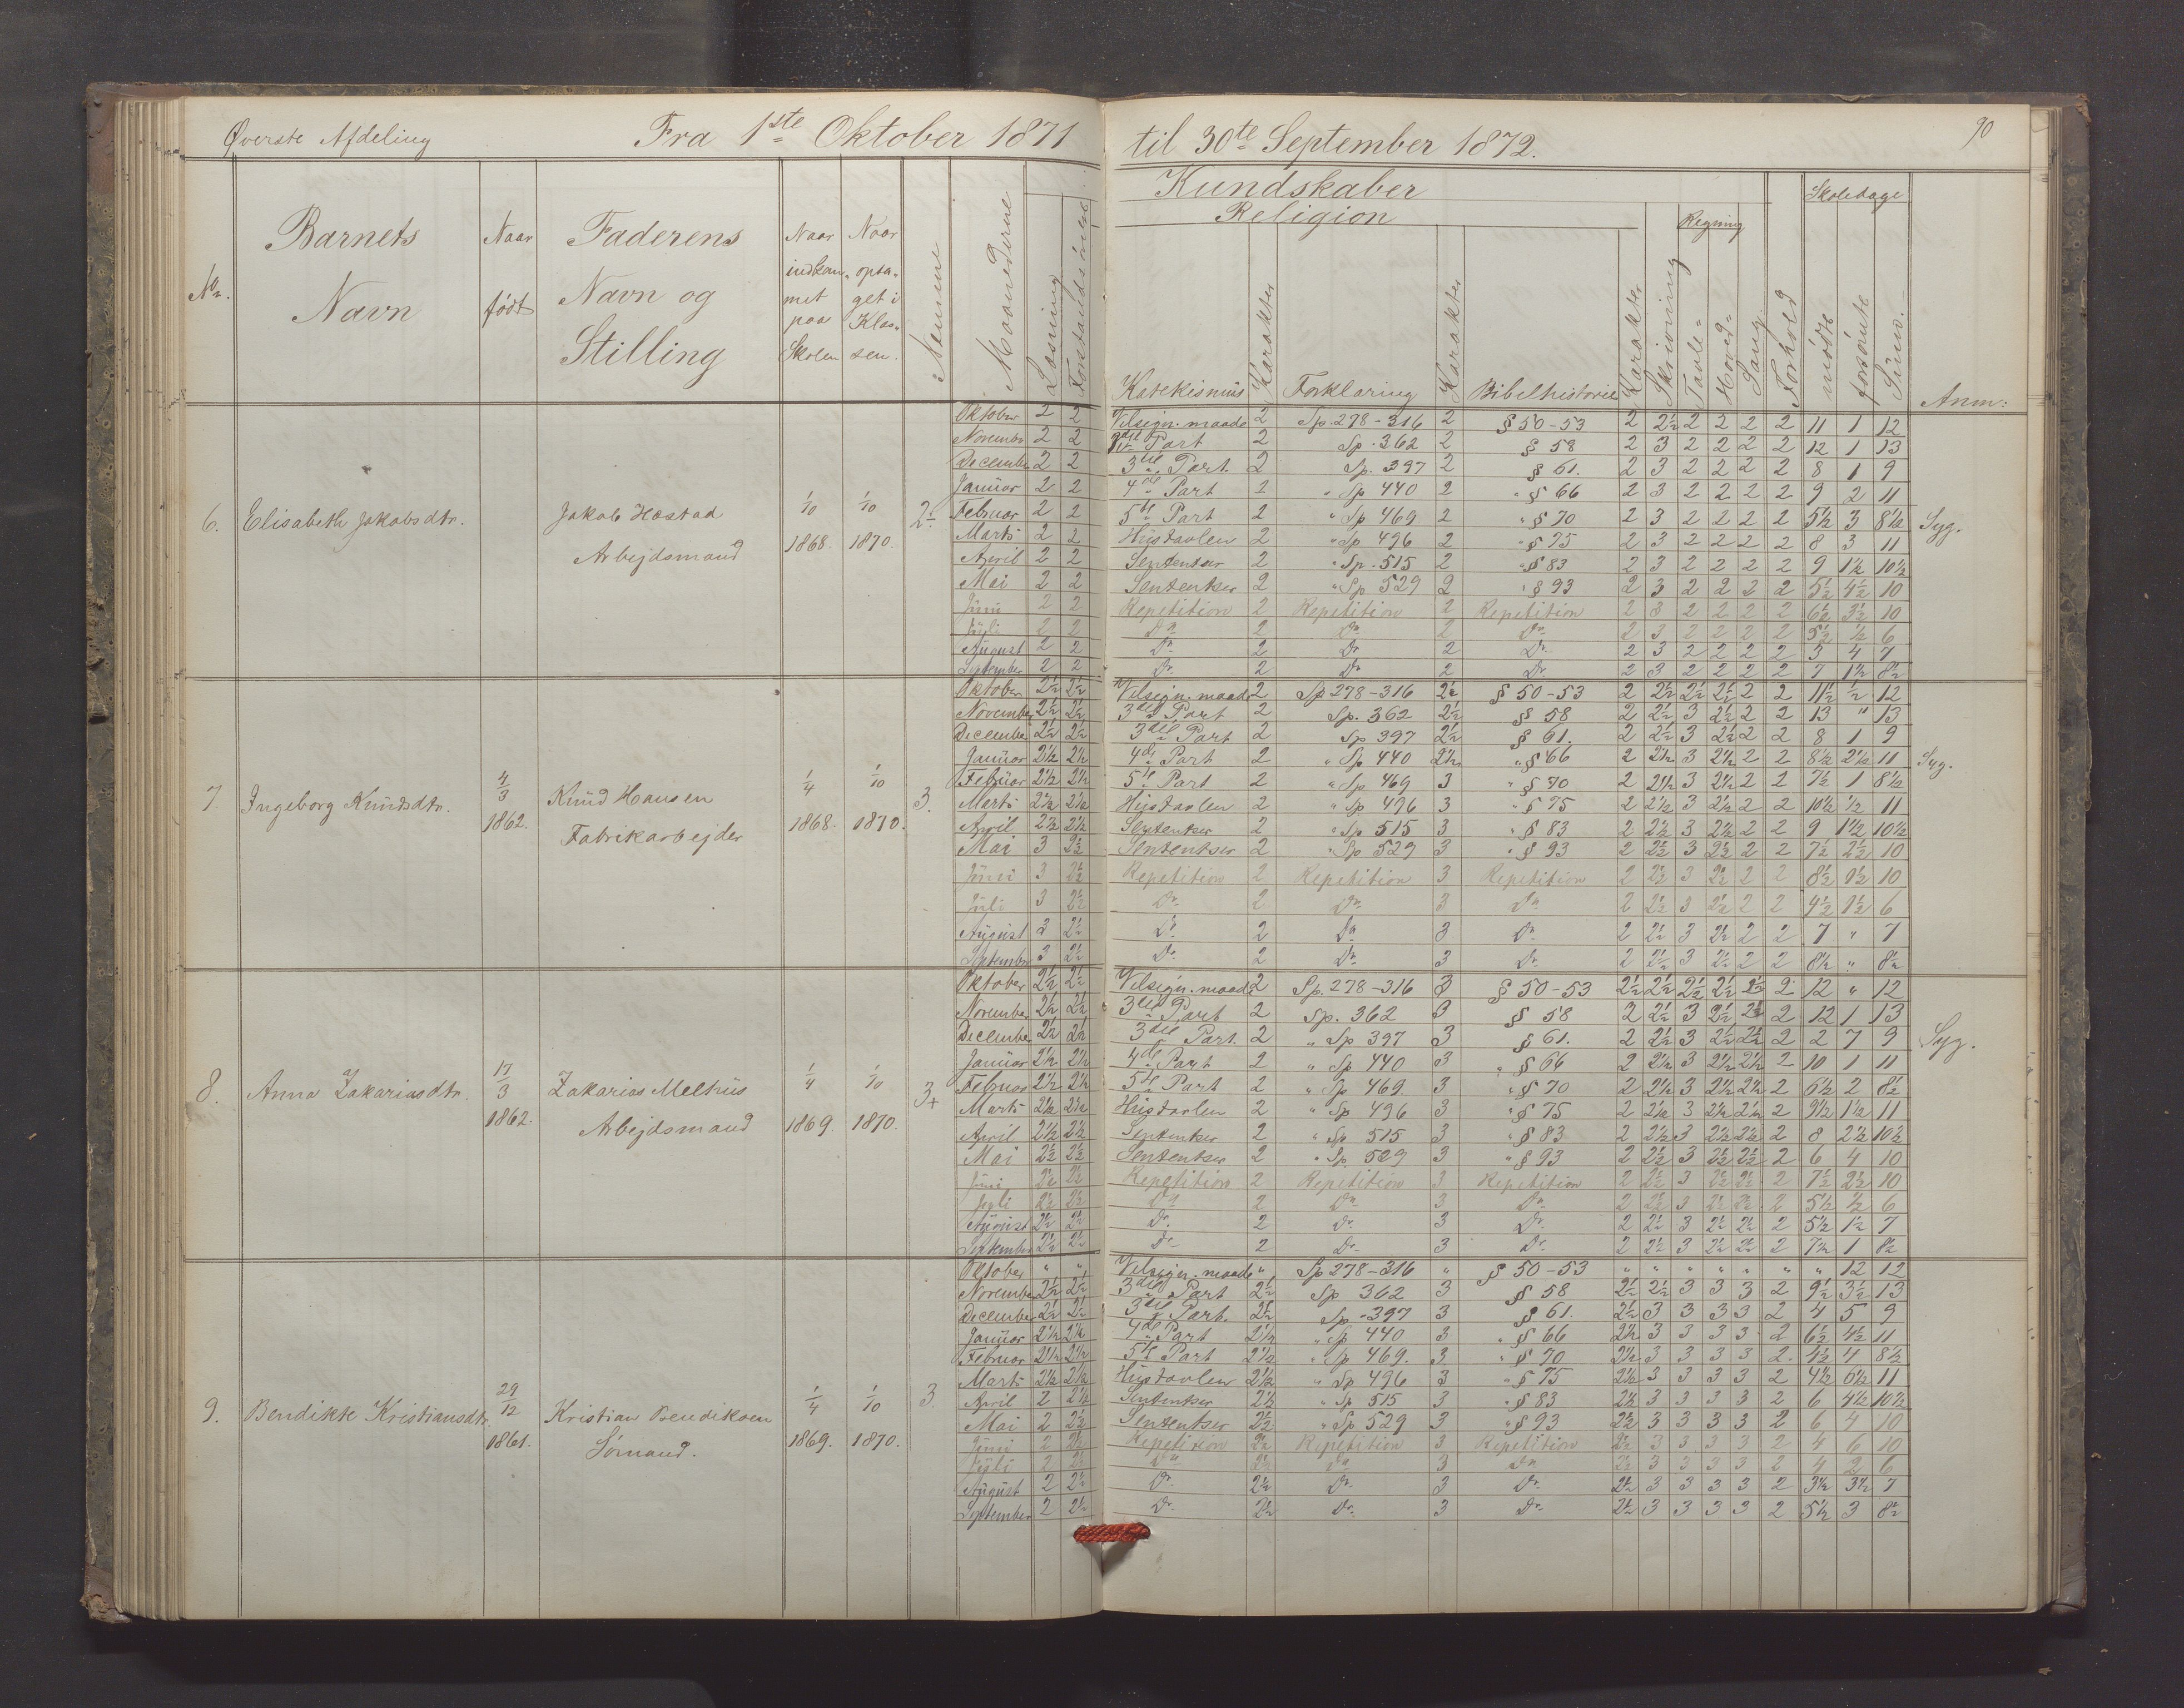 Øverste Afdeling Fra 1ste Oktober 1871 til 30te September 1872. 90
Kundskaber Skoledage
Religion Regning
No. Barnets Navn Naar født Faderens Navn og Stilling Naar indkommet paa Skolen Naar optaget i Klassen. Nemme Maanederne Læsning Forstandsøvelse Katekismus Karakter Forklaring Karakter Bibelhistorie Karakter Skrivning Tavle- Hoved- Sang Forhold mødte forsømte Sum. Anm:
6. Elisabeth Jakobsdtr. Jakob Hæstad Arbejdsmand 1/10 1868. 1/10 1870. 2 Syg.
Oktober 2 2 Velsign. maade 2 Sp. 278-316 2 § 50-53 2 2½ 2 2 2 2 11 1 12
November 2 2 Part 2 Sp. 362 2 § 58 2 3 2 2 2 2 12 1 13
December 2 2 3die Part 2 Sp. 397 2 § 61. 2 3 2 2 2 2 8 1 9
Januar 2 2 4de Part 2 " Sp 440 2 " § 66 2 3 2 2 2 2 9 2 11
Februar 2 2 5te Part 2 " Sp 469 2 " § 70 2 3 2 2 2 2 5½ 3 8½
Marts 2 2 Hustavlen 2 " Sp 496 2 " § 75 2 3 2 2 2 2 8 3 11
April 2 2 Sententser 2 " Sp. 515 2 " § 83 2 3 2 2 2 2 9 1½ 10½
Mai 2 2 Sententser 2 " Sp 529 2 " § 93 2 3 2 2 2 2 5½ 4½ 10
Juni 2 2 Repetition 2 Repetition 2 Repetition 2 3 2 2 2 2 6½ 3½ 10
Juli 2 2 Do 2 Do 2 Do 2 3 2 2 2 2 5½ ½ 6
August 2 2 Do 2 Do 2 Do 2 3 2 2 2 2 3 4 7
September 2 2 Do 2 Do 2 Do 2 3 2 2 2 2 7 1½ 8½
7. Ingeborg Knudsdtr. 4/3 1862. Knud Hansen Fabrikarbejder 1/4 1868. 1/10 1870. 3. Syg.
Oktober 2½ 2½ Velsign. maade 2 Sp 278-316 2½ § 50-53 2 2½ 2½ 2½ 2 2 11½ ½ 12
November 2½ 2½ 3die Part 2 Sp. 362 2½ § 58 2 2½ 3 2½ 2 2 13 " 13
December 2½ 2½ 3die Part 2 Sp 397 2½ § 61. 2 2½ 3 2½ 2 2 8 1 9
Januar 2½ 2½ 4de Part 2 " Sp 440 2½ " § 66 2 2½ 3 2½ 2 2 8½ 2½ 11
Februar 2½ 2½ 5te Part 2 " Sp. 469 3 " § 70 2 2½ 3 2½ 2 2 7½ 1 8½
Marts 2½ 2½ Hustavlen 2 " Sp 496 3 " § 75 2 2½ 3 2½ 2 2 10½ ½ 11
April 2½ 2½ Sententser 2 " Sp 515 3 " § 83 2 2½ 3 2½ 2 2 9 1½ 10½
Mai 3 2½ Sententser 2 " Sp 529 3 " § 93 2 2½ 3 2½ 2 2 7½ 2½ 10
Juni 3 2½ Repetition 2 Repetition 3 Repetition 2 2½ 3 2½ 2 2 8½ 1½ 10
Juli 3 2½ Do 2 Do 3 Do 2 2½ 3 2½ 2 2 4½ 1½ 6
August 3 2½ Do 2 Do 3 Do 2 2½ 3 2½ 2 2 7 " 7
September 3 2½ Do 2 Do 3 Do 2 2½ 3 2½ 2 2 8½ " 8½
8. Anna Zakariasdtr. 17/3 1862. Zakarias Melhus Arbejdsmand 1/4 1869. 1/10 1870. 3+ Syg.
Oktober 2½ 2½ Velsign. maade 2 Sp. 278-316 3 § 50-53 2½ 2½ 2½ 2½ 2½ 2 12 " 12
November 2½ 2½ 3die Part 2 Sp. 362 3 § 58 2 2½ 3 2½ 2½ 2 12 1 13
December 2½ 2½ 3die Part 2 " Sp 397 3 § 61. 2 2½ 3 2½ 2½ 2 2 7 9
Januar 2½ 2½ 4de Part 2 " Sp 440 3 " § 66 2 2½ 3 2½ 2½ 2 10 1 11
Februar 2½ 2½ 5te Part 2 " Sp 469. 3 " § 70 2 2½ 3 2½ 2½ 2 6½ 2 8½
Marts 2½ 2½ Hustavlen 2 " Sp 496 3 " § 75 2 2½ 3 2½ 2½ 2 9½ 1½ 11
April 2½ 2½ Sententser 2 " Sp 515 3 " § 83 2 2½ 3 2½ 2½ 2 8 2½ 10½
Mai 2½ 2½ Sententser 2 " Sp. 529 3 " § 93 2 2½ 3 2½ 2½ 2 6 4 10
Juni 2½ 2½ Repetition 2 Repetition 3 Repetition 2 2½ 3 2½ 2½ 2 7½ 2½ 10
Juli 2½ 2½ Do 2 Do 3 Do 2 2½ 3 2½ 2½ 2 5½ ½ 6
August 2½ 2½ Do 2 Do 3 Do 2 2½ 3 2½ 2½ 2 5½ 1½ 7
September 2½ 2½ Do 2 Do 3 Do 2 2½ 3 2½ 2½ 2 7½ 1 8½
9. Bendikte Kristiansdtr. 29/12 1861. Kristian Bendiksen Sømand. 1/4 1869. 1/10 1870. 3
Oktober " " Velsign. maade " Sp 278-316 " § 50-53 " " " " " " " 12 12
November 2½ 2½ 3die Part 2½ Sp 362 3 § 58 2½ 2½ 3 3 3 2 9½ 3½ 13
December 2½ 2½ 3die Part. 2½ Sp. 397 3 § 61. 2½ 3 3 3 3 2 4 5 9
Januar 2½ 2½ 4de Part 2½ " Sp 440 3 " § 66 2½ 3 3 3 3 2 6½ 4½ 11
Februar 2½ 2½ 5te Part 2½ " Sp 469. 3 " § 70 2½ 3 3 3 3 2 4½ 4 8½
Marts 2½ 2½ Hustavlen 2½ " Sp 496 3 " § 75 2½ 3 3 3 3 2 4½ 6½ 11
April 2 2½ Sententser 2½ " Sp 515 3 " § 83 2½ 3 3 3 3 2 6 4½ 10½
Mai 2 2½ Sententser 2½ " Sp 529 3 " § 93 2½ 3 3 3 3 2 6 4 10
Juni 2 2½ Repetition 2½ Repetition 3 Repetition 2½ 3 3 3 3 2 4 6 10
Juli 2 2½ Do 2½ Do 3 Do 2½ 3 3 3 3 2 4 2 6
August 2 2½ Do 2½ Do 3 Do 2½ 3 3 3 3 2 3½ 3½ 7
September 2 2½ Do 2½ Do 3 Do 2½ 3 3 3 3 2 5½ 3 8½